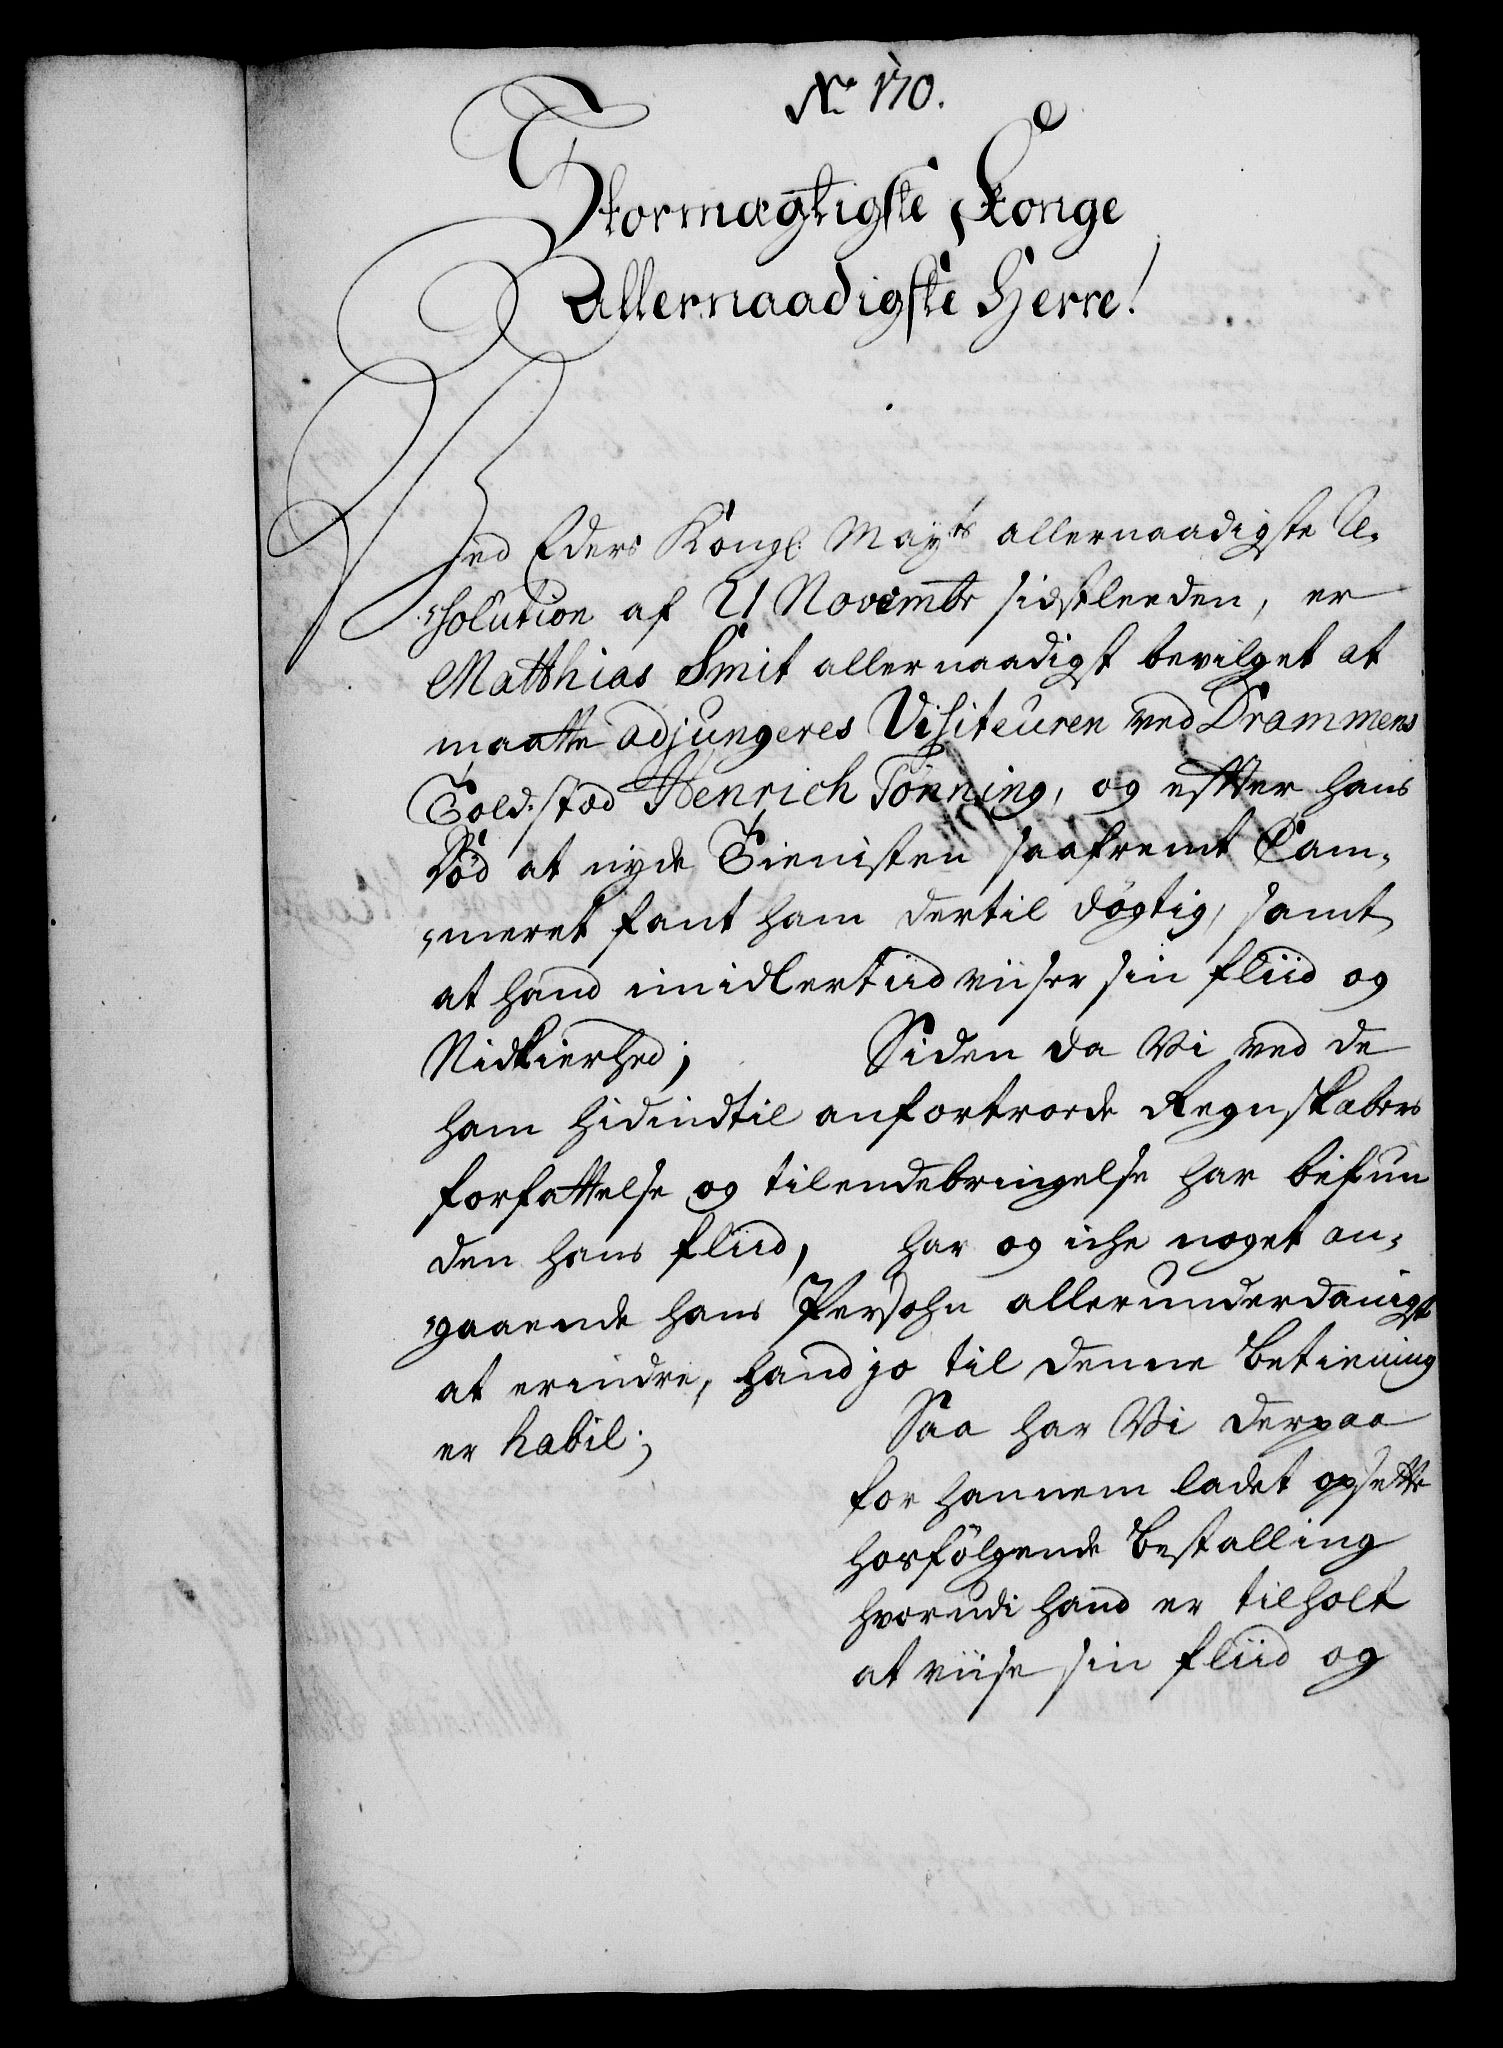 No 170.
Stormægtigste Konge
Allernaadigste Herre!
Ved Eders Kongl: Mayts allernaadigste Re-
solution af 21 Novembr sidstleeden, er
Matthias Smit allernaadigst bevilget at
maatte adjungeres Visiteuren ved Drammens
Toldstæd Henrich Tønning, og efter hans
død at nyde Tienisten saafremt Cam-
meret fant ham dertil døgtig, samt
at hand imidlertiid viiser sin fliid og
Nidkierhed; Siden da Vi ved de
ham hidindtil anfortroede Regnskabers
forfattelse og tilendebringelse har befun
den hans fliid, har og iche noget an-
gaaende hans Persohn allerunderdanigst
at erindre, hand jo til denne Betiening
er habil; Saa har Vi derpaa
for hannem ladet opsette
hosfølgende Bestalling
hvorudi hand er tilholt
at viise sin fliid og